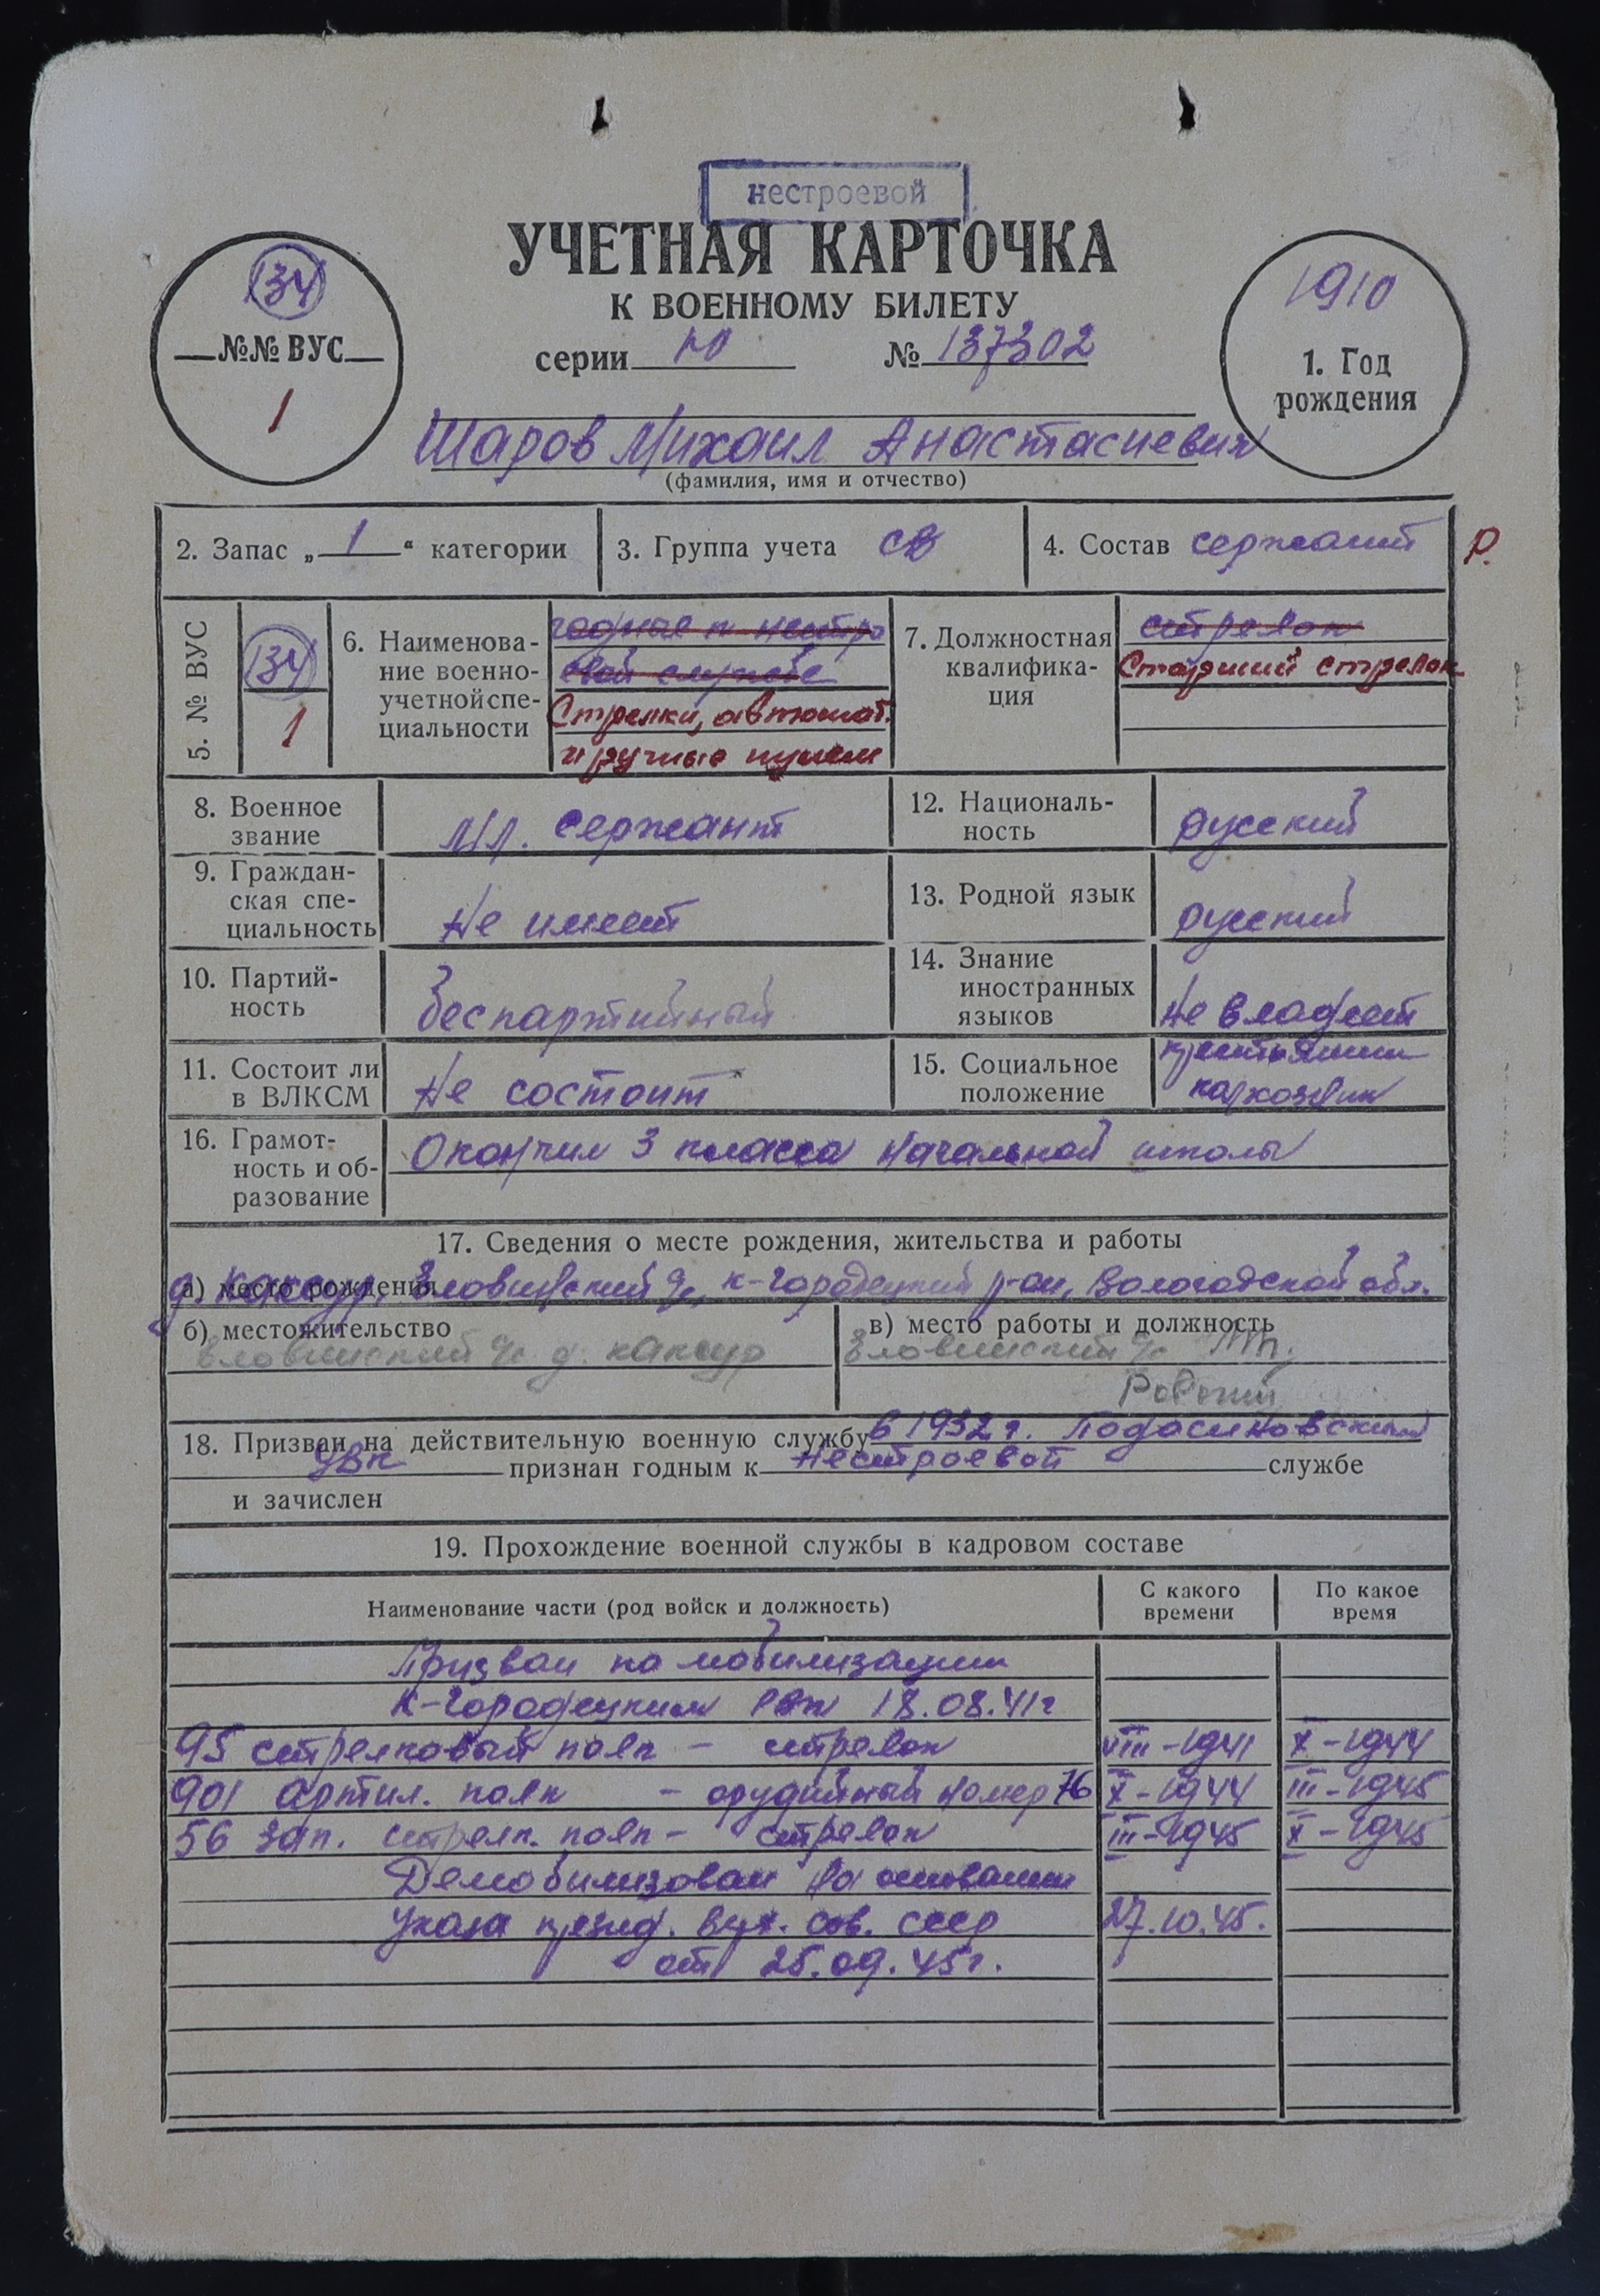 нестроевой
УЧЕТНАЯ КАРТОЧКА
К ВОЕННОМУ БИЛЕТУ
серии Ю № 137302
134
№№ ВУС
1
1910
1. Год
рождения
Шаров Михаил Анастасиевич
(фамилия, имя и отчество)
2. Запас „ 1 “ категории
3. Группа учета СВ
4. Состав сержант
Р.
5. № ВУС
134
1
6. Наименова-
ние военно-
учетной спе-
циальности
годные к нестро
евой службе
Стрелки, автомат.
и ручные пулем
7. Должностная
квалифика-
ция
стрелок
Старший стрелок
8. Военное
звание
Мл. сержант
12. Националь-
ность
русский
9. Граждан-
ская спе-
циальность
Не имеет
13. Родной язык
русский
10. Партий-
ность
беспартийный
14. Знание
иностранных
языков
Не владеет
11. Состоит ли
в ВЛКСМ
Не состоит
15. Социальное
положение
крестьянин
колхозник
16. Грамот-
ность и об-
разование
Окончил 3 класса начальной школы
17. Сведения о месте рождения, жительства и работы
а) место рождения
д. Каксур, Еловинский с/с, К-Городецкий р-он, Вологодской обл.
б) местожительство
Еловинский с/с д. Каксур
в) место работы и должность
Еловинский
Рабочий
18. Призван на действительную военную службу в 1932 г. Подосиновский
УВК признан годным к нестроевой службе
и зачислен
19. Прохождение военной службы в кадровом составе
Наименование части (род войск и должность)
С какого
времени
По какое
время
Призван по мобилизации
К-Городецким РВК 18.08.41г
95 стрелковый полк - стрелок VIII-1941 X-1944
901 артил. полк - орудийный номер 76 X-1944 III-1945
56 зап. стрелк. полк - стрелок III-1945 X-1945
Демобилизован на основании
Указа презид. Верх. Сов. СССР 27.10.45.
от 25.09.45г.